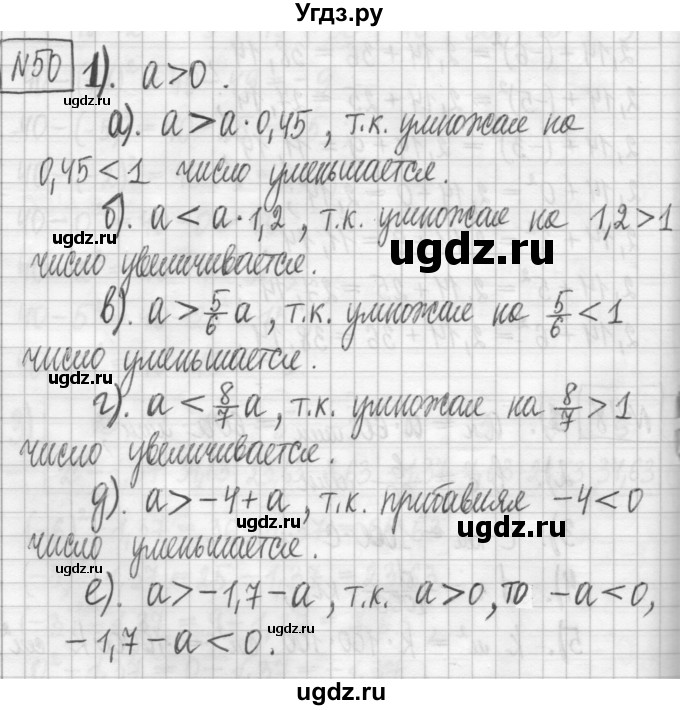 Угдз.ру
N50 1). a>0.
а). a>a·0,45, т.к. умножая на
0,45<1 число уменьшается.
б). a<a·1,2, т.к. умножая на 1,2>1
число увеличивается.
в). a>5/6 a, т.к. умножая на 5/6<1
число уменьшается.
г). a<8/7 a, т.к. умножая на 8/7>1
число увеличивается.
д). a>-4+a, т.к. прибавляя -4<0
число уменьшается.
е). a>-1,7-a, т.к. a>0, то -a<0,
-1,7-a<0.
ugdz.ru
ugdz.ru
ugdz.ru
ugdz.ru
ugdz.ru
ugdz.ru
ugdz.ru
ugdz.ru
ugdz.ru
ugdz.ru